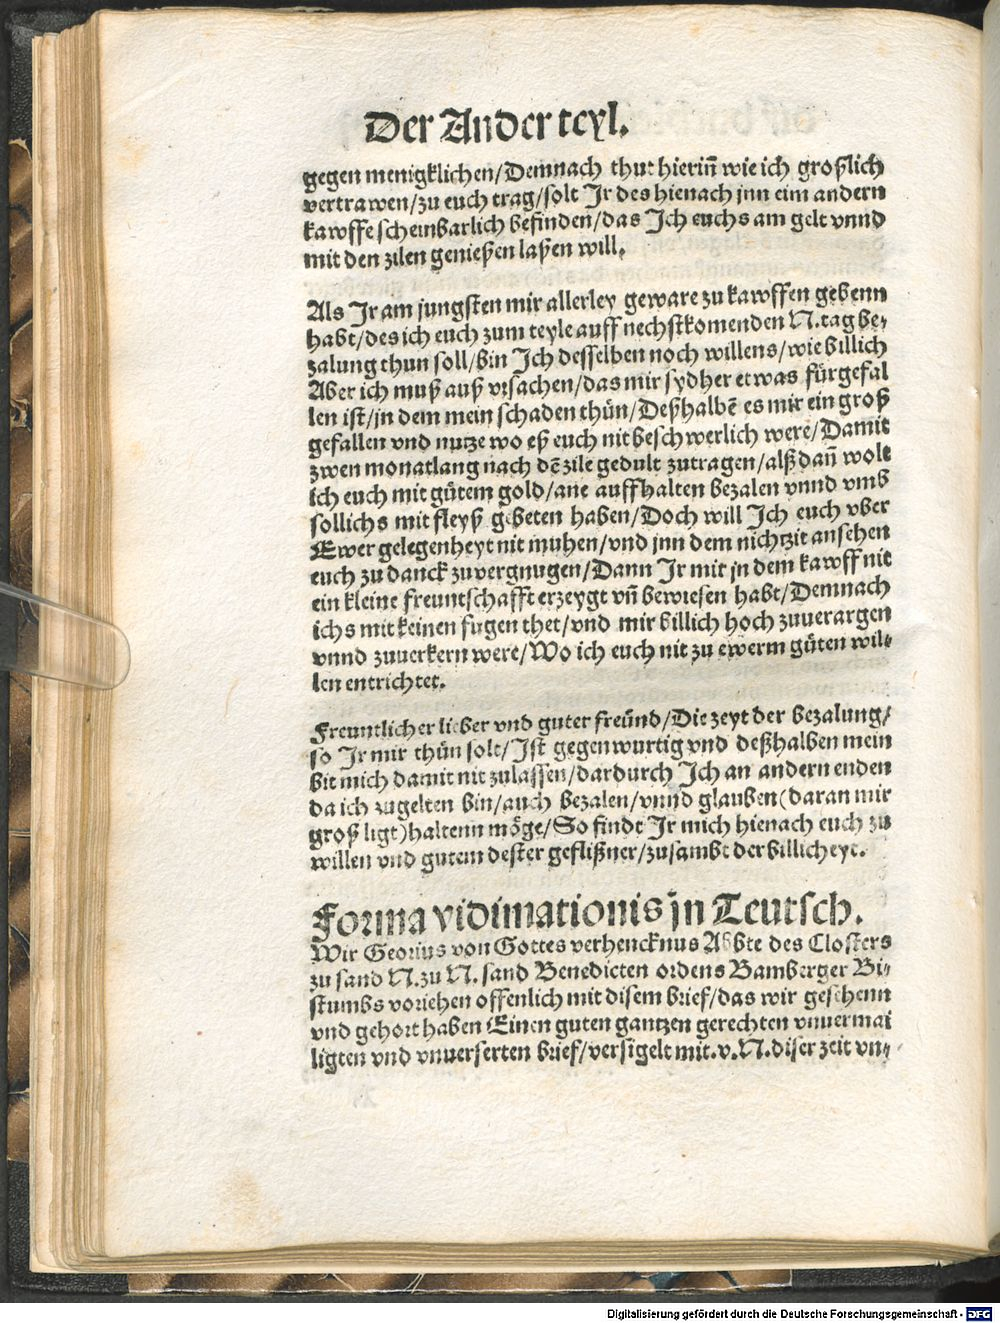 Der Ander teyl.
gegen menigklichen/Demnach thut hierin̄ wie ich großlich
vertrawen/zu euch trag/solt Jr des hienach jnn eim andern
kawffe scheinbarlich befinden/das Jch euchs am gelt vnnd
mit den zilen genießen laßen will.
Als Jr am jungsten mir allerley geware zu kawffen gebenn
habt/des ich euch zum teyle auff nechstkomenden N.tag be⸗
zalung thun soll/bin Jch desselben noch willens/wie billich
Aber ich muß auß vrsachen/das mir sydher etwas fürgefal
len ist/jn dem mein schaden thün/Deßhalbē es mir ein groß
gefallen vnd nutze wo eß euch nit beschwerlich were/Damit
zwen monatlang nach dē zile gedult zutragen/alß dan̄ wolt
ich euch mit gütem gold/ane auffhalten bezalen vnnd vmb
sollichs mit fleyß gebeten haben/Doch will Jch euch vber
Ewer gelegenheyt nit muhen/vnd jnn dem nichtzit ansehen
euch zu danck zuvergnugen/Dann Jr mir jn dem kawff nit
ein kleine freuntschafft erzeygt vn̄ bewiesen habt/Demnach
ichs mit keinen fugen thet/vnd mir billich hoch zuuerargen
vnnd zuuerkern were/Wo ich euch nit zu ewerm güten wil⸗
len entrichtet.
Freuntlicher lieber vnd guter freünd/Die zeyt der bezalung/
so Jr mir thün solt/Jst gegenwurtig vnd deßhalben mein
bit mich damit nit zulassen/dardurch Jch an andern enden
da ich zugelten bin/auch bezalen/vnnd glauben(daran mir
groß ligt)haltenn möge/So findt Jr mich hienach euch zu
willen vnd gutem dester geflißner/zusambt der billicheyt.
Forma vidimationis jn Teutsch.
Wir Georius von Gottes verhencknus Abbte des Closters
zu sand N.zu N.sand Benedicten ordens Bamberger Bi⸗
stumbs voriehen offenlich mit disem brief/das wir gesehenn
vnd gehort haben Einen guten gantzen gerechten vnuermai
ligten vnd vnuerserten brief/versigelt mit.v.N.diser zeit vn⸗
Digitalisierung gefördert durch die Deutsche Forschungsgemeinschaft - DFG